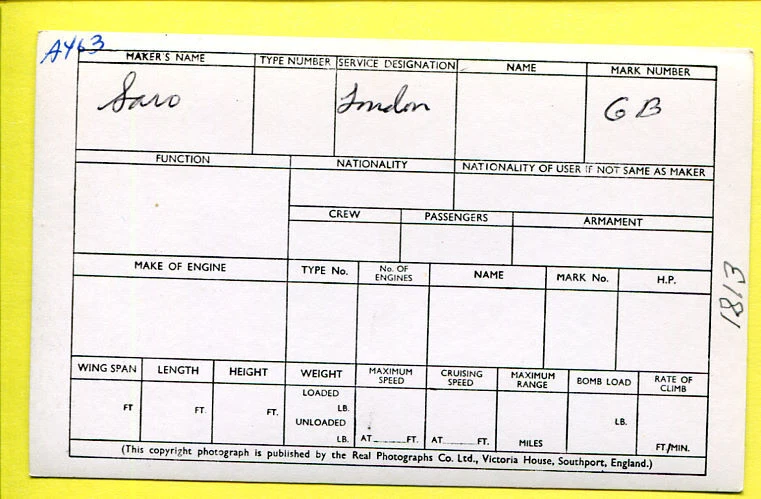 A463
MAKER'S NAME TYPE NUMBER SERVICE DESIGNATION NAME MARK NUMBER
Saro London GB
FUNCTION NATIONALITY NATIONALITY OF USER IF NOT SAME AS MAKER
CREW PASSENGERS ARMAMENT
MAKE OF ENGINE TYPE No. No. OF ENGINES NAME MARK No. H.P.
1813
WING SPAN LENGTH HEIGHT WEIGHT MAXIMUM SPEED CRUISING SPEED MAXIMUM RANGE BOMB LOAD RATE OF CLIMB
LOADED
FT FT. FT. LB. LB.
UNLOADED
LB. AT____FT. AT____FT. MILES FT./MIN.
(This copyright photograph is published by the Real Photographs Co. Ltd., Victoria House, Southport, England.)